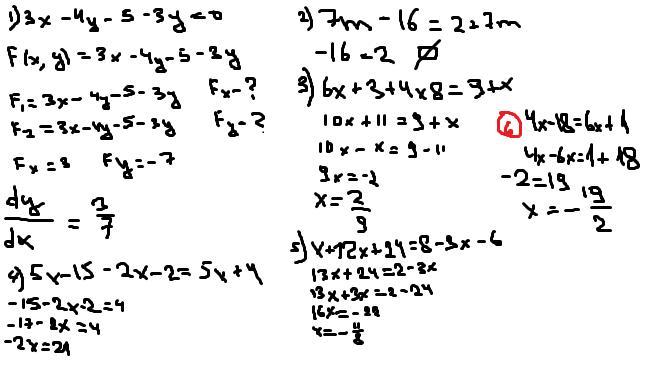 1) 3x - 4y - 5 - 3y = 0
F(x, y) = 3x - 4y - 5 - 3y
F₁ = 3x - 4y - 5 - 3y Fx - ?
F₂ = 3x - 4y - 5 - 3y Fy - ?
Fx = 3 Fy = -7
dy/dx = 3/7
4) 5x - 15 - 2x - 2 = 5x + 4
-15 - 2x - 2 = 4
-17 - 2x = 4
-2x = 21
2) 7m - 16 = 2 + 7m
-16 = 2
3) 6x + 3 + 4x 8 = 9 + x
10x + 11 = 9 + x
10x - x = 9 - 11
9x = -2
x = 2/9
5) x + 12x + 24 = 8 - 3x - 6
13x + 24 = 2 - 3x
13x + 3x = 2 - 24
16x = -22
x = -11/8
6 4x - 18 = 6x + 1
4x - 6x = 1 + 18
-2 = 19
x = -19/2